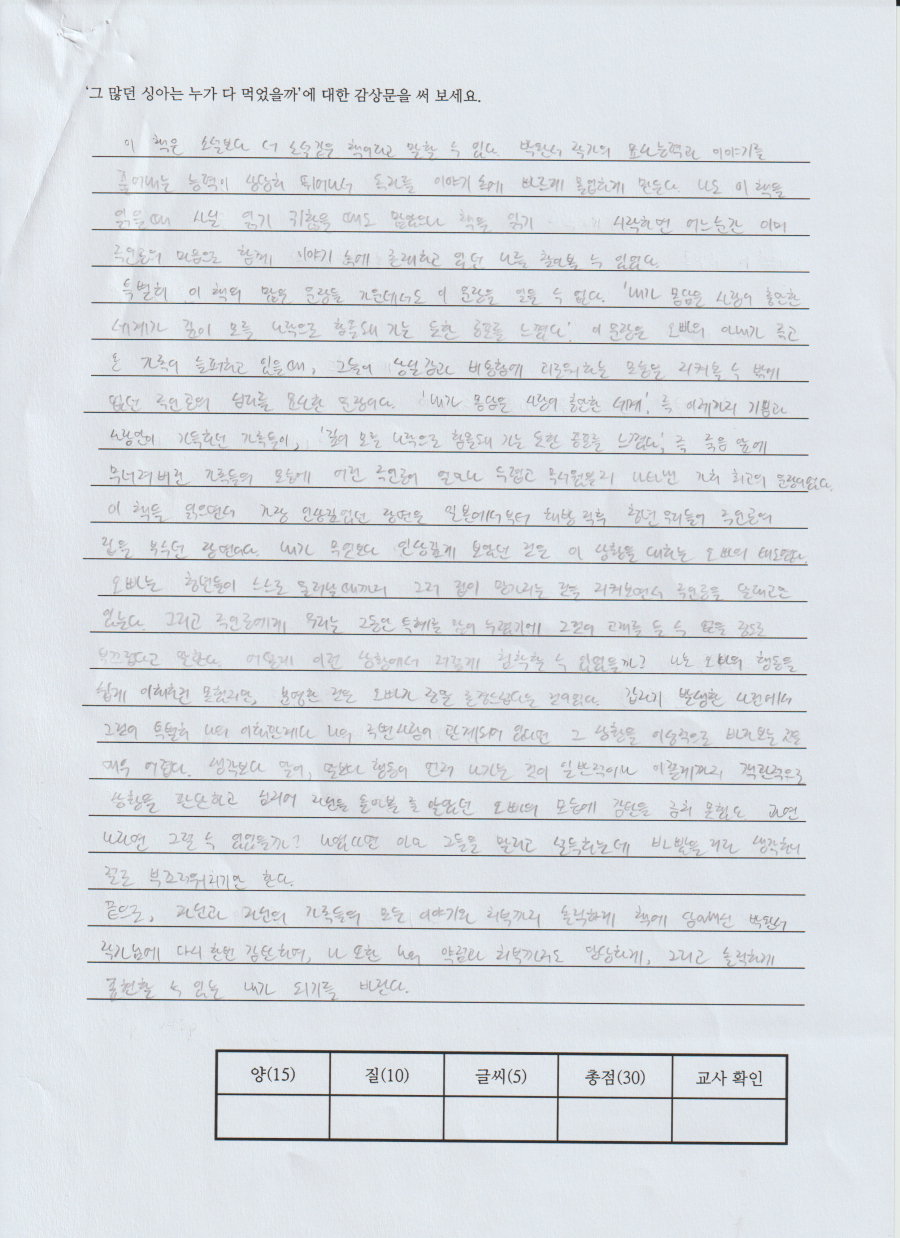 '그 많던 싱아는 누가 다 먹었을까'에 대한 감상문을 써 보세요.
이 책은 소설보다 더 소설같은 책이라고 말할 수 있다. 박완서 작가의 묘사능력과 이야기를
풀어내는 능력이 상당히 뛰어나서 독자를 이야기 속에 빠르게 몰입하게 만든다. 나도 이 책을
읽을때 사실 읽기 귀찮을 때도 많았으나 책을 읽기 시작하면 어느순간 이미
주인공의 마음으로 함께 이야기 속에 존재하고 있던 나를 찾아볼 수 있었다.
특별히 이 책의 많은 문장들 가운데서도 이 문장을 잊을 수 없다. '내가 몸담은 사랑이 충만한
세계가 깊이 모를 나락으로 함몰돼 가는 듯한 공포를 느꼈다.' 이 문장은 오빠의 아내가 죽고
온 가족이 슬퍼하고 있을때, 그들의 상실감과 비통함에 괴로워하는 모습을 지켜볼 수 밖에
없던 주인공의 심리를 묘사한 문장이다. '내가 몸담은 사랑이 충만한 세계', 즉 이제까지 기쁨과
사랑만이 가득하던 가족들이, '깊이 모를 나락으로 함몰돼 가는 듯한 공포를 느꼈다', 즉 죽음 앞에
무너져버린 가족들의 모습에 어린 주인공이 얼마나 두렵고 무서웠을지 나타낸 가히 최고의 문장이었다.
이 책을 읽으면서 가장 인상깊었던 장면은 일본에서부터 해방 직후 청년 무리들이 주인공의
집을 부수던 장면이다. 내가 무엇보다 인상깊게 보았던 것은 이 상황을 대하는 오빠의 태도였다.
오빠는 청년들이 스스로 물러날때까지 그저 집이 망가지는 것을 지켜보면서 주인공을 달래고만
있는다. 그리고 주인공에게 우리는 그동안 특혜를 많이 누렸기에 그것이 고깝게 둘 수 없을 정도로
부끄럽다고 말한다. 어떻게 이런 상황에서 저렇게 침착할 수 있었을까? 나는 오빠의 행동을
쉽게 이해하진 못했지만, 분명한 것은 오빠가 정말 존경스럽다는 것이었다. 갑자기 발생한 사건에서
그것이 특별히 나의 이해관계나 나의 주변사람이 관계되어 있다면 그 상황을 이성적으로 바라보는 것은
매우 어렵다. 생각보다 말이, 말보다 행동이 먼저 나가는 것이 일반적이나 이렇게까지 객관적으로
상황을 판단하고 심지어 자신을 돌아볼 줄 알았던 오빠의 모습에 감탄을 금치 못함도 과연
나라면 그럴 수 있었을까? 나였다면 이미 그들을 말리고 설득하는데 바빴을거라 생각하니
절로 부끄러워지기만 한다.
끝으로, 자신과 자신의 가족들의 모든 이야기와 치부까지 솔직하게 책에 담아내신 박완서
작가님에 다시 한번 감탄하며, 나 또한 나의 약점과 치부까지도 당당하게, 그리고 솔직하게
표현할 수 있는 내가 되기를 바란다.
양(15) 질(10) 글씨(5) 총점(30) 교사 확인